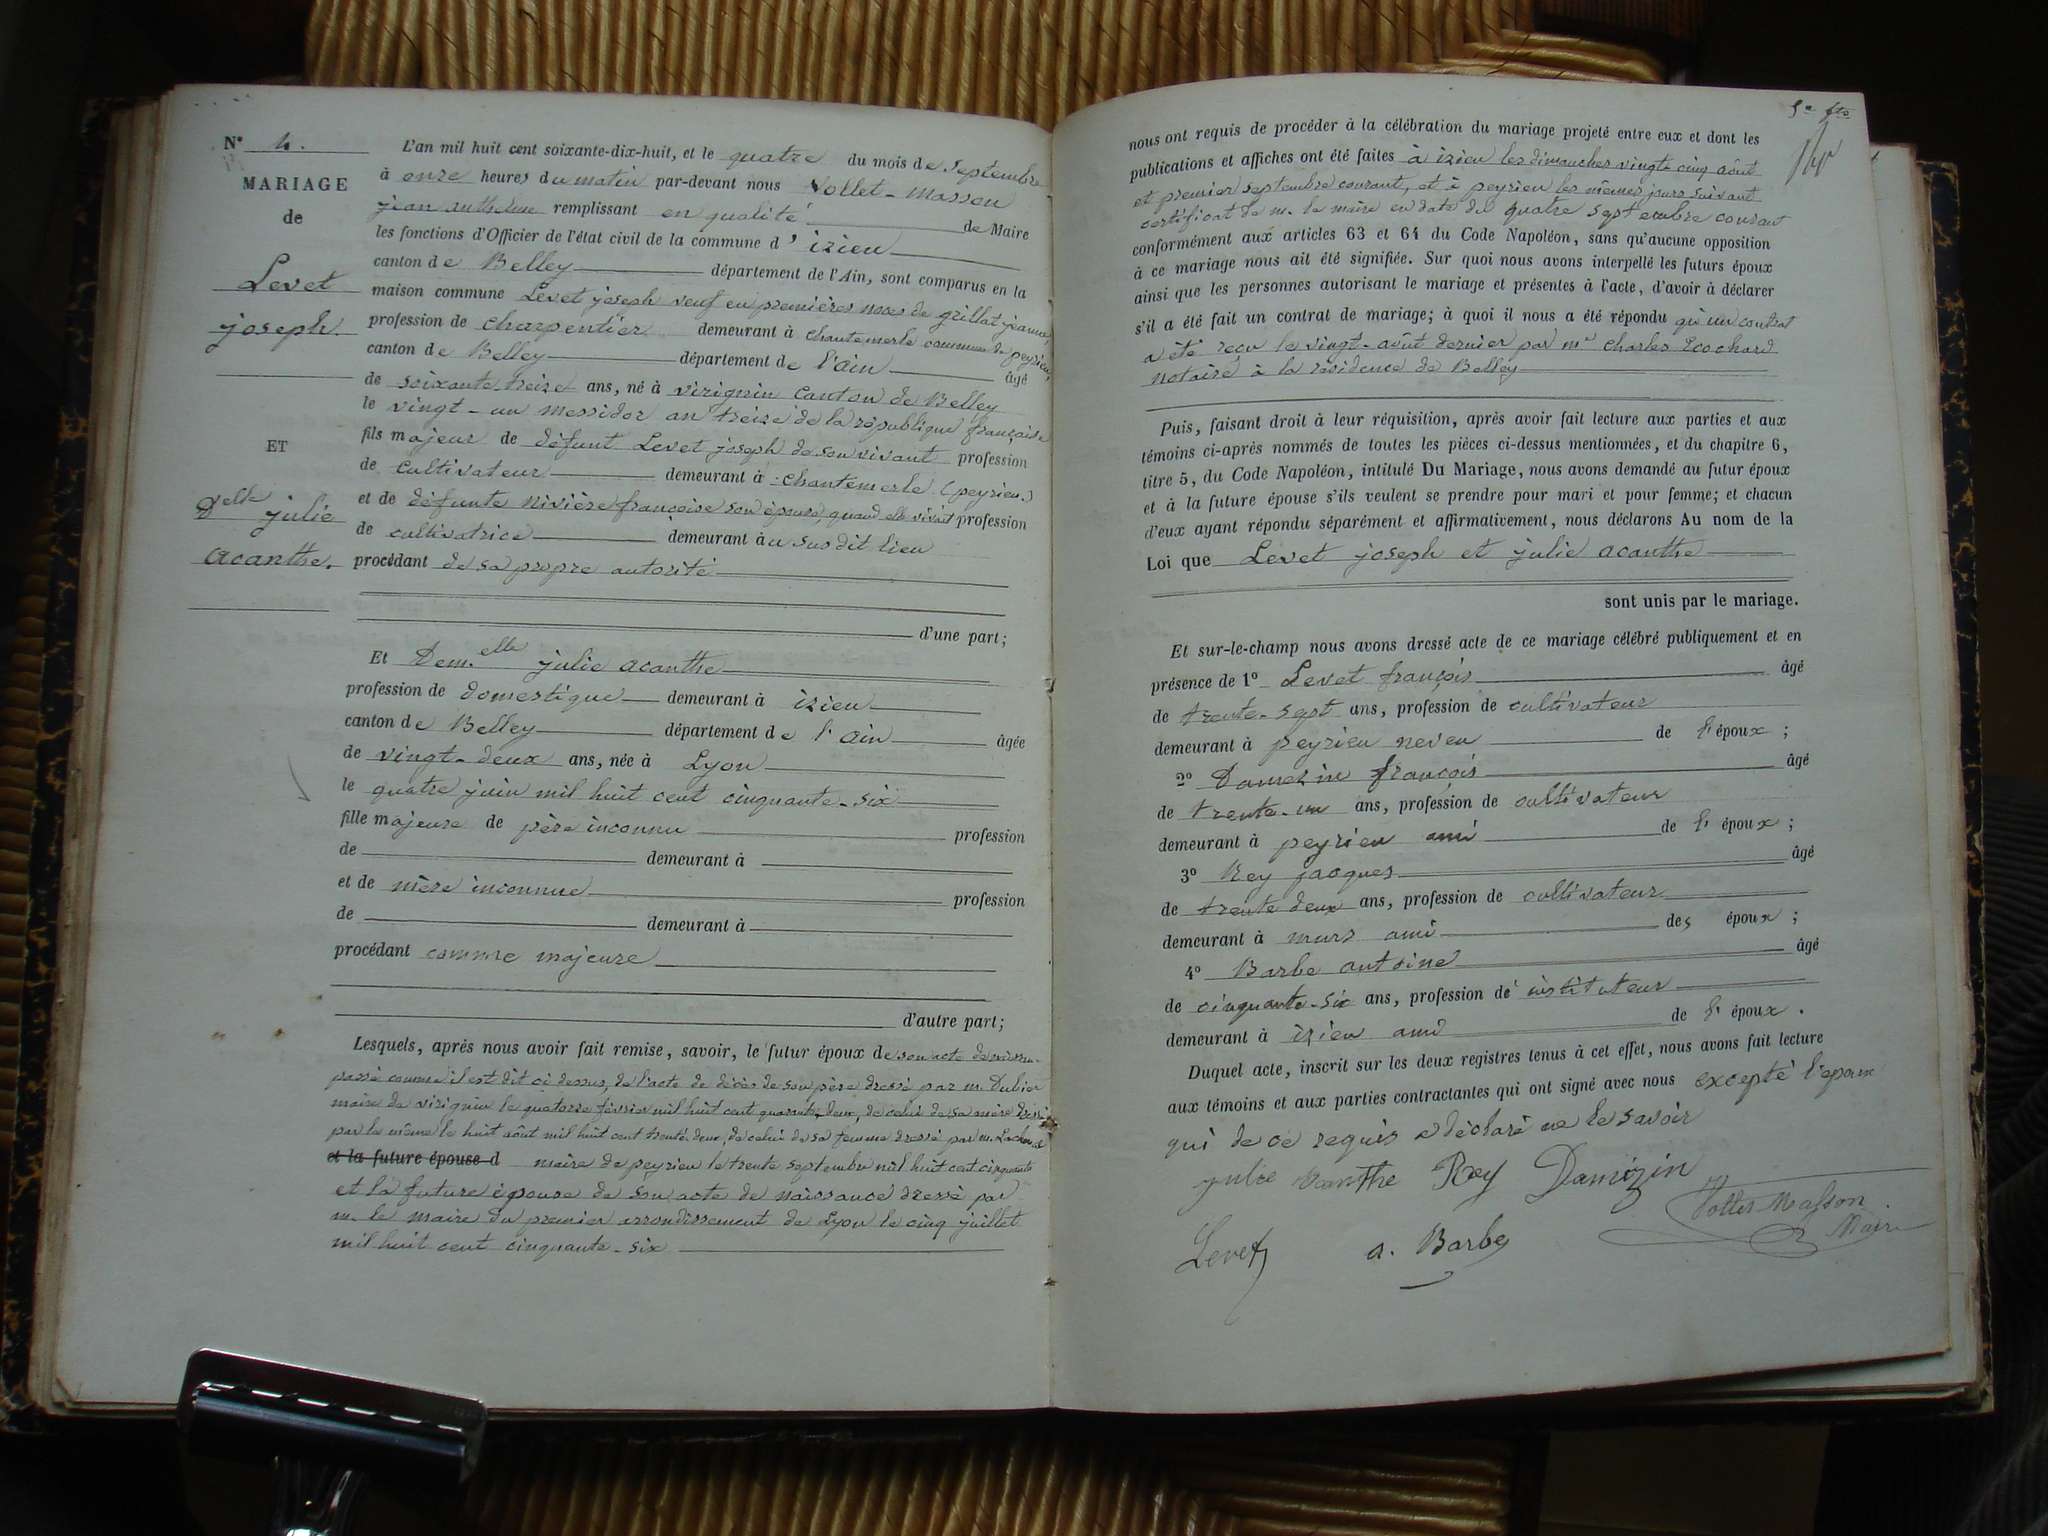 N° 4.
MARIAGE
de
Levet
joseph.
ET
Delle julie
acanthe.
L'an mil huit cent soixante-dix-huit, et le quatre du mois de septembre
à onze heures du matin par-devant nous Vollet-Masson
jean anthelme remplissant en qualité de Maire
les fonctions d'Officier de l'état civil de la commune d'izieu
canton de Belley département de l'Ain, sont comparus en la
maison commune Levet joseph veuf en premières noces de grillat jeanne,
profession de charpentier demeurant à chantemerle commune de peyrieu,
canton de Belley département de l'ain âgé
de soixante-treize ans, né à virignin canton de Belley
le vingt-un messidor an treize de la république française
fils majeur de défunt Levet joseph de son vivant profession
de cultivateur demeurant à chantemerle (peyrieu.)
et de défunte nivière françoise son épouse, quand elle vivait profession
de cultivatrice demeurant au susdit lieu
procédant de sa propre autorité
d'une part;
Et Dem.elle julie acanthe
profession de domestique demeurant à izieu
canton de Belley département de l'ain âgée
de vingt-deux ans, née à Lyon
le quatre juin mil huit cent cinquante-six
fille majeure de père inconnu profession
de demeurant à
et de mère inconnue profession
de demeurant à
procédant comme majeure
d'autre part;
Lesquels, après nous avoir fait remise, savoir, le futur époux de son acte de naissance
passé comme il est dit ci dessus, de l'acte de décès de son père dressé par m. Dubier
maire de virignin le quatorze février mil huit cent quarante-deux, de celui de sa mère dressé
par le même le huit août mil huit cent trente deux, de celui de sa femme dressé par m.
et la future épouse d maire de peyrieu le trente septembre mil huit cent cinquante
et la future épouse de son acte de naissance dressé par
m. le maire du premier arrondissement de Lyon le cinq juillet
mil huit cent cinquante-six
nous ont requis de procéder à la célébration du mariage projeté entre eux et dont les
publications et affiches ont été faites à izieu les dimanches vingt cinq août
et premier septembre courant, et à peyrieu les mêmes jours suivant
certificat de m. le maire en date du quatre septembre courant
conformément aux articles 63 et 64 du Code Napoléon, sans qu'aucune opposition
à ce mariage nous ait été signifiée. Sur quoi nous avons interpellé les futurs époux
ainsi que les personnes autorisant le mariage et présentes à l'acte, d'avoir à déclarer
s'il a été fait un contrat de mariage; à quoi il nous a été répondu qu'un contrat
a été reçu le vingt-août dernier par me charles Ecochard
notaire à la résidence de Belley
Puis, faisant droit à leur réquisition, après avoir fait lecture aux parties et aux
témoins ci-après nommés de toutes les pièces ci-dessus mentionnées, et du chapitre 6,
titre 5, du Code Napoléon, intitulé Du Mariage, nous avons demandé au futur époux
et à la future épouse s'ils veulent se prendre pour mari et pour femme; et chacun
d'eux ayant répondu séparément et affirmativement, nous déclarons Au nom de la
Loi que Levet joseph et julie acanthe
sont unis par le mariage.
Et sur-le-champ nous avons dressé acte de ce mariage célébré publiquement et en
présence de 1° Levet françois âgé
de trente-sept ans, profession de cultivateur
demeurant à peyrieu neveu de l'époux;
2° Damezin françois âgé
de trente-un ans, profession de cultivateur
demeurant à peyrieu ami de l'époux;
3° Rey jacques âgé
de trente deux ans, profession de cultivateur
demeurant à murs ami des époux;
4° Barbe antoine âgé
de cinquante-six ans, profession de instituteur
demeurant à izieu ami de l'époux.
Duquel acte, inscrit sur les deux registres tenus à cet effet, nous avons fait lecture
aux témoins et aux parties contractantes qui ont signé avec nous excepté l'epoux
qui de ce requis a déclaré ne le savoir
julie acanthe Rey Damizin
Vollet Masson
Maire
Levet a. Barbe